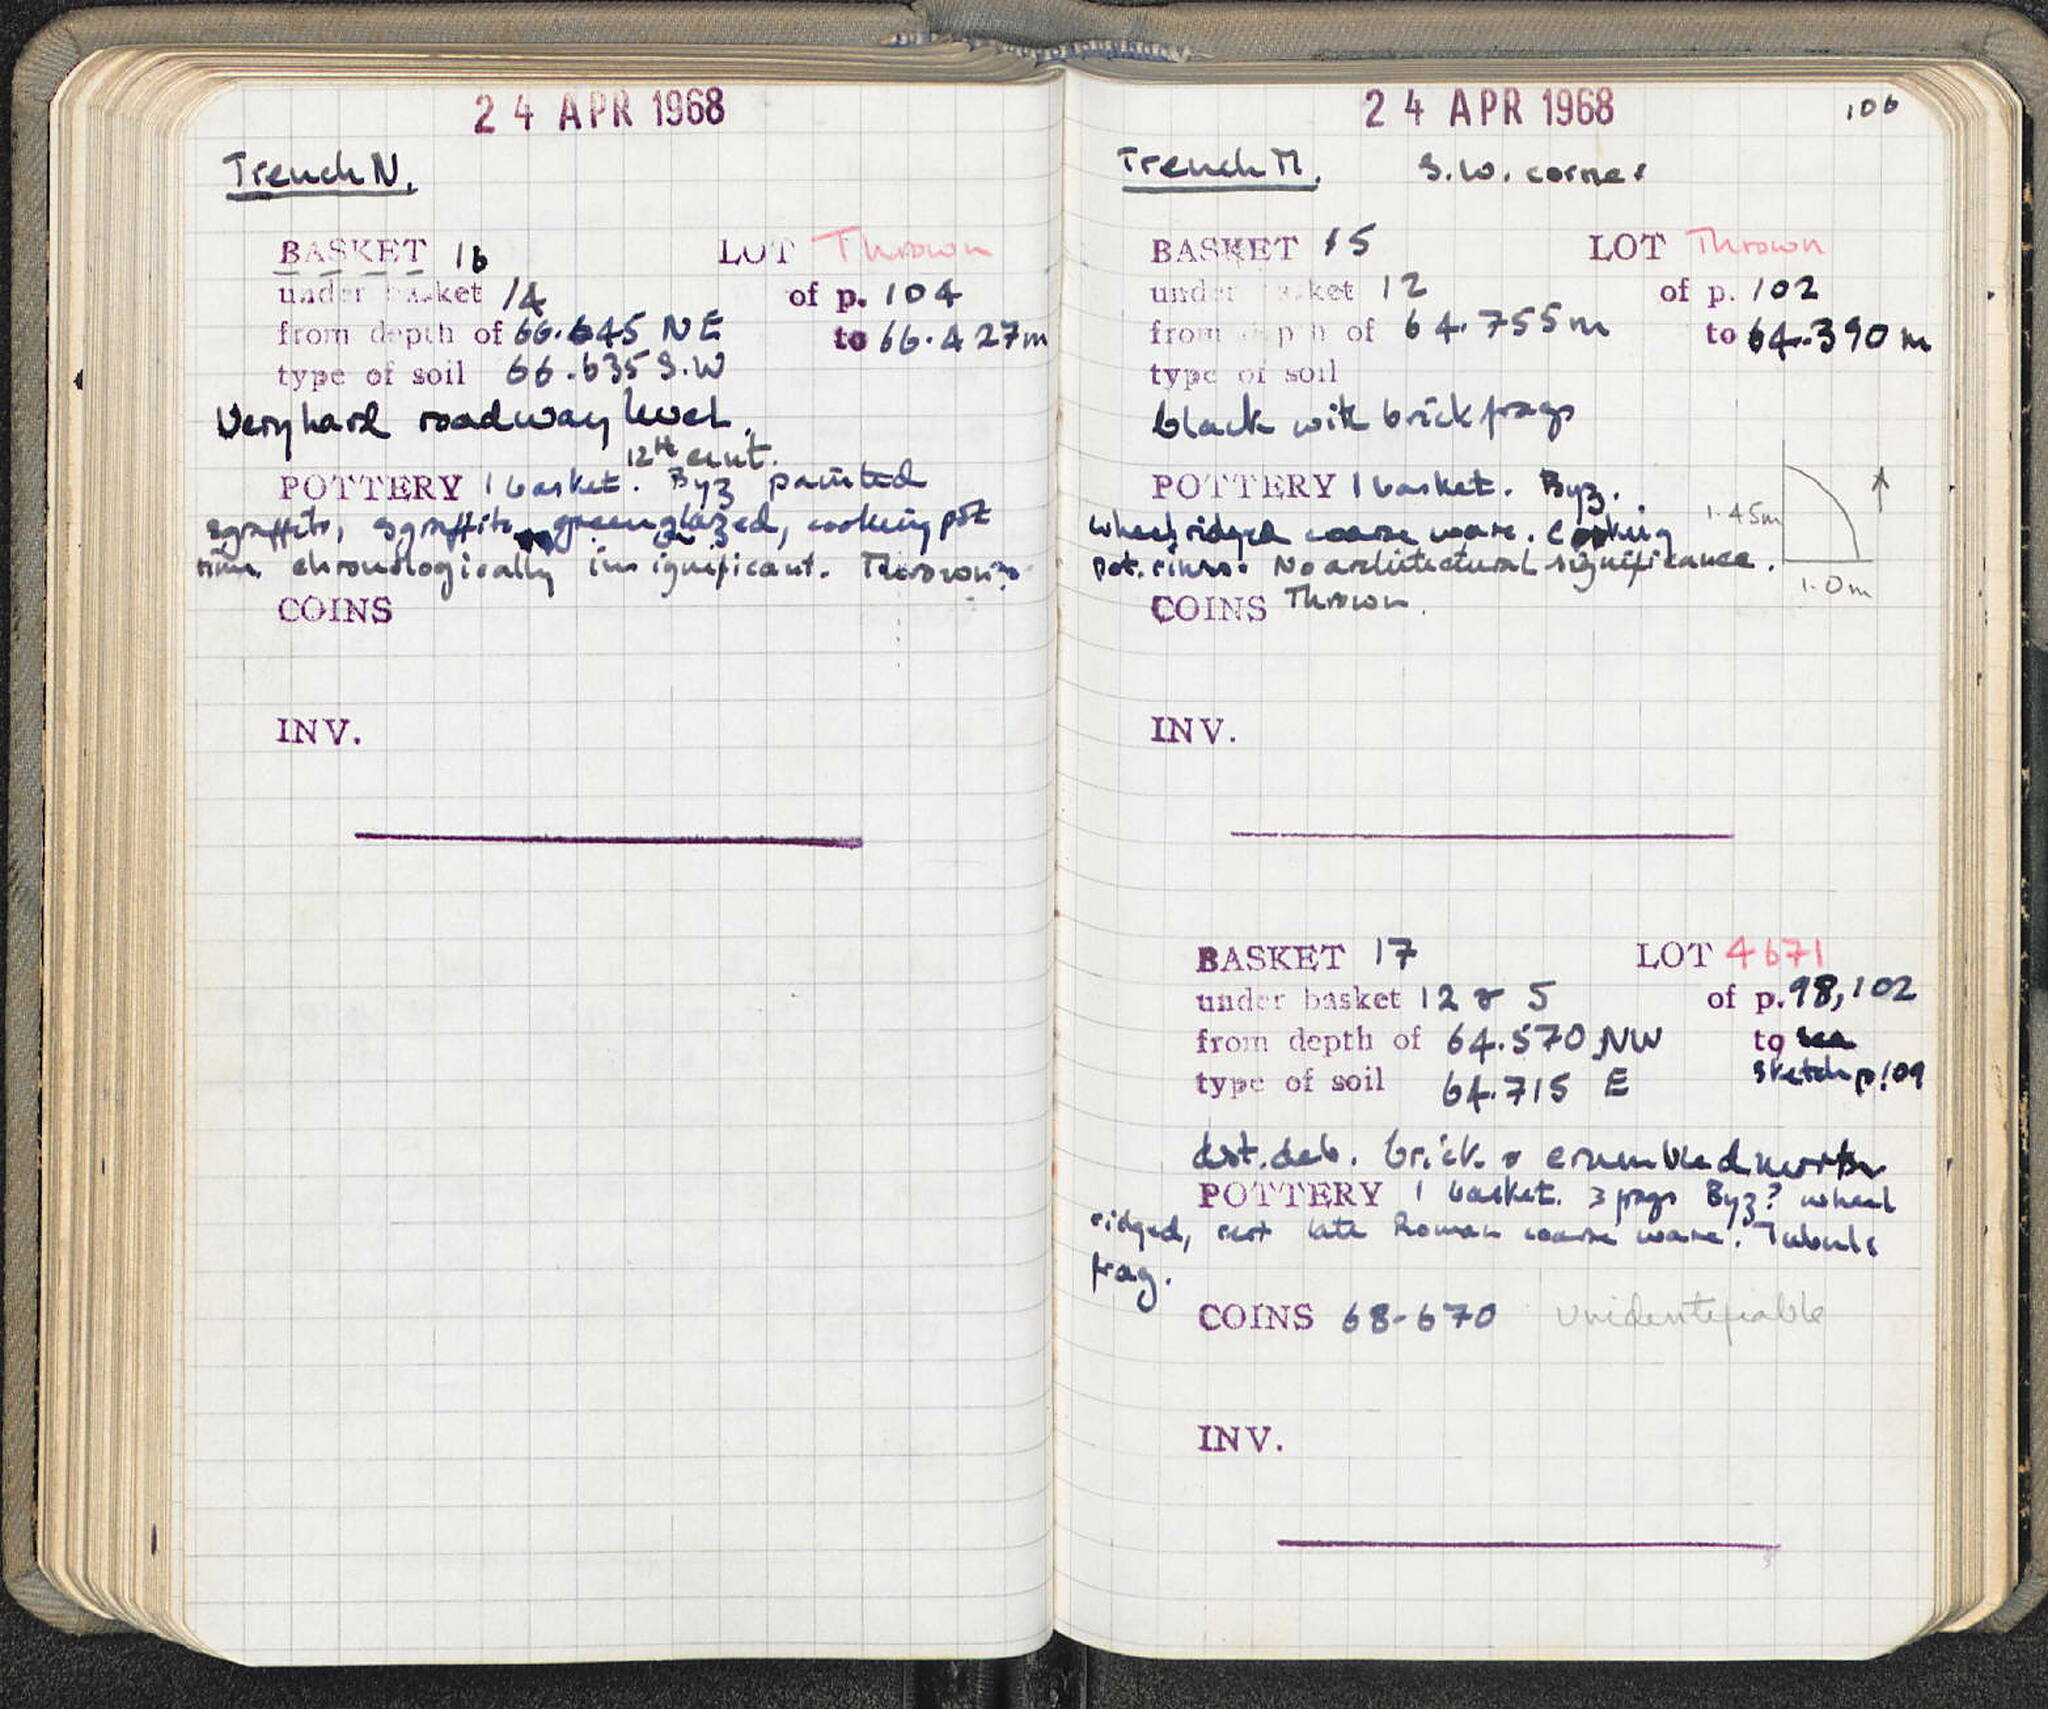 24 APR 1968
Trench N.
BASKET 16 LOT Thrown
under basket 14 of p. 104
from depth of 66.645 NE to 66.427m
type of soil 66.635 S.W
Very hard roadway level.
12th cent.
POTTERY 1 basket. Byz painted
sgraffito, sgraffito green glazed, cooking pot
rim. chronologically insignificant. Thrown
COINS
INV.
24 APR 1968 106
Trench M. S.W. corner
BASKET 15 LOT Thrown
under basket 12 of p. 102
from depth of 64.755m to 64.390m
type of soil
black with brick frags
POTTERY 1 basket. Byz.
wheelridged coarse ware. Cooking
pot. rims. No architectural significance.
COINS Thrown.
1.45m
1.0m
INV.
BASKET 17 LOT 4671
under basket 12 & 5 of p. 98, 102
from depth of 64.570 NW to
type of soil 64.715 E sketch p109
dist. deb. brick & crumbled mortar
POTTERY 1 basket. 3 frags Byz? wheel
ridged, rest late Roman coarse ware. Tubulus
frag.
COINS 68-670 Unidentifiable
INV.